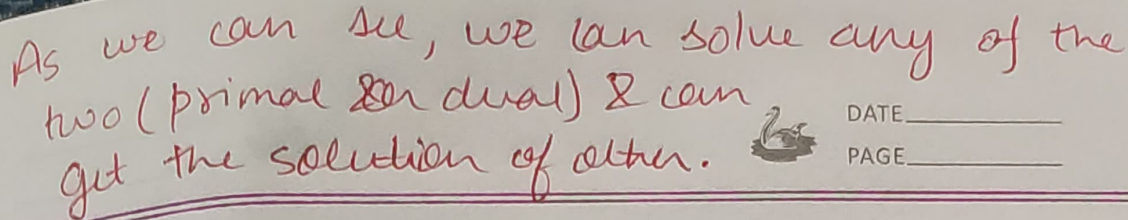 As we can see, we can solve any of the
two (primal or dual) & can
get the solution of other.
DATE
PAGE